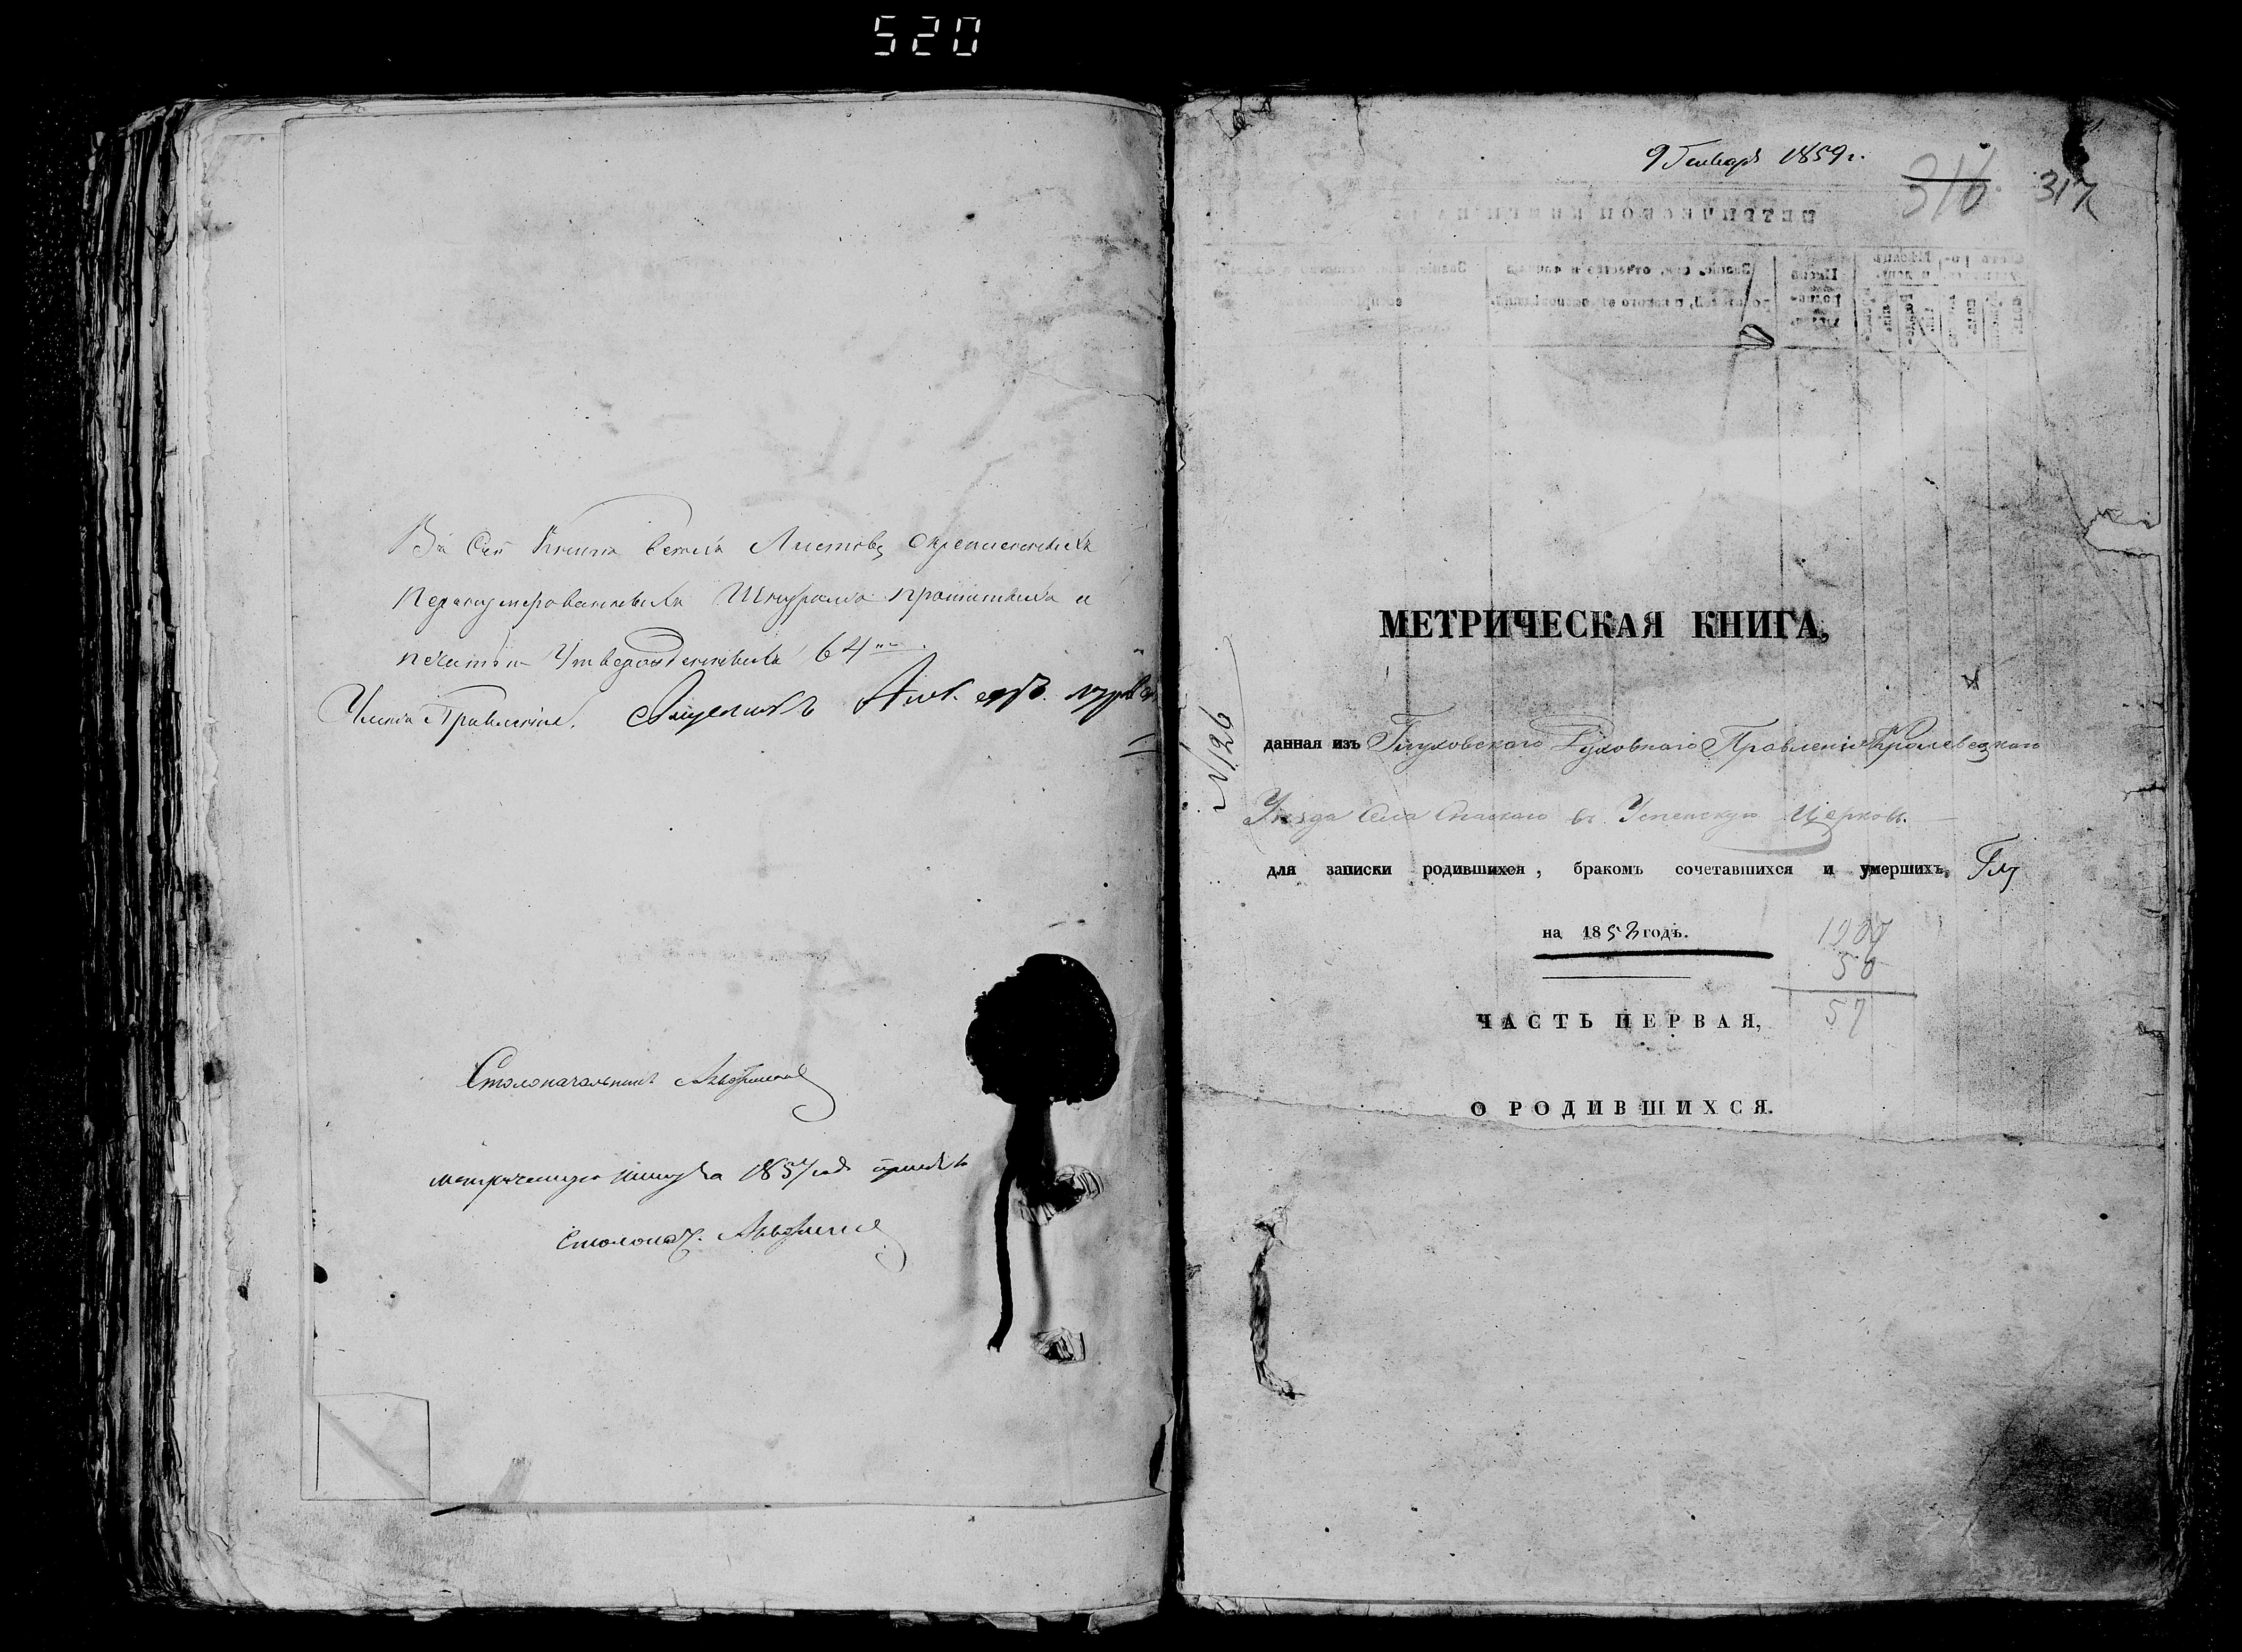 520
Въ сей Книгѣ всѣхъ Листовъ скрѣпленныхъ
перенумерованныхъ Шнуромъ прошитыхъ и
печатью Утвержденныхъ 64
Члены Правленія.
Столоначальникъ
метрическую книгу за 1857 годъ
Столонач.
9 Генваря 1859 г.
316 317
МЕТРИЧЕСКАЯ КНИГА,
№ 126
данная изъ Глуховскаго Духовнаго Правленія Кролевецкаго
Уѣзда Села Спаскаго въ Успенскую Церковь.
для записки родившихся, бракомъ сочетавшихся и умершихъ, Глу
на 1858 годъ.
1907
50
57
ЧАСТЬ ПЕРВАЯ,
О РОДИВШИХСЯ.